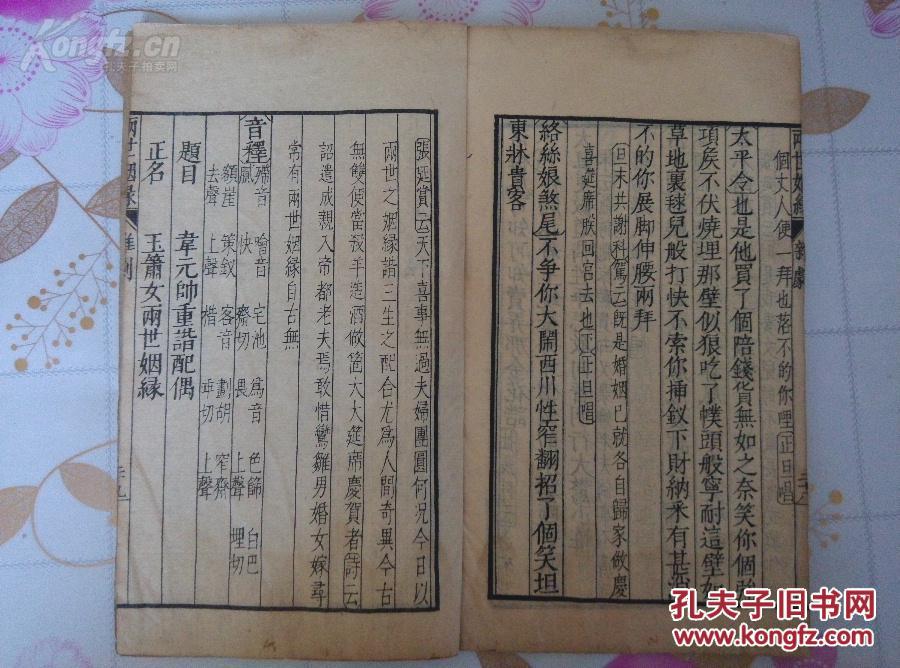 兩世姻緣 雜劇 二十八
個丈人便一拜也落不的你哩正旦唱
太平令也是他買了個陪錢貨無如之奈笑你個強
項侯不伏燒埋那壁似狼吃了幞頭般寧耐這壁如
草地裏毬兒般打快不索你揷釵下財納采有甚
不的你展脚伸腰兩拜
旦末共謝科駕云既是婚姻巳就各自歸家做慶
喜筵席朕回宮去也下正旦唱
絡絲娘煞尾不爭你大鬧西川性窄翻招了個笑坦
東牀貴客
張延賞云天下喜事無過夫婦團圓何况今日以
兩世之姻緣諧三生之配合尤爲人間奇異今古
無雙便當殺羊造酒做箇大大筵席慶賀者詩云
詔遣成親入帝都老夫焉敢惜鸞雛男婚女嫁尋
常有兩世姻緣自古無
音釋
音 噲音 宅池 爲音 色篩 白巴
快 齋切 畏 上聲 埋切
顏崖 策釵 客音 劃胡 窄齋
去聲 上聲 楷 乖切 上聲
題目 韋元帥重諧配偶
正名 玉簫女兩世姻緣
兩世姻緣 二十九
Kongfz.cn
孔夫子拍卖网
孔夫子旧书网
www.kongfz.com